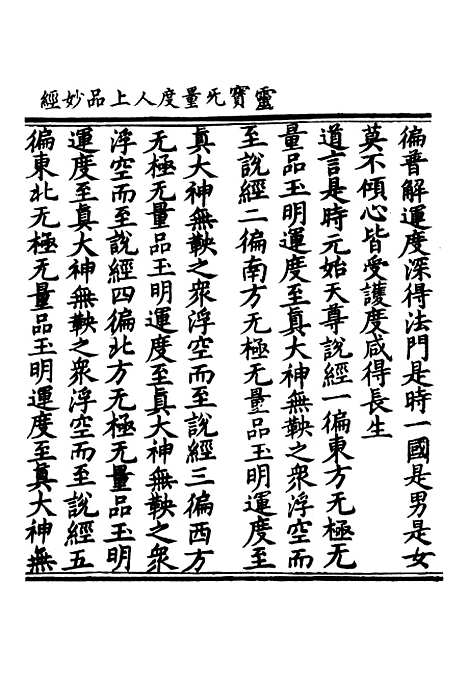 靈寶无量度人上品妙經
徧普解運度深得法門是時一國是男是女
莫不傾心皆受護度咸得長生
道言是時元始天尊說經一徧東方无極无
量品玉明運度至真大神無鞅之衆浮空而
至說經二徧南方无極无量品玉明運度至
真大神無鞅之衆浮空而至說經三徧西方
无極无量品玉明運度至真大神無鞅之衆
浮空而至說經四徧北方无極无量品玉明
運度至真大神無鞅之衆浮空而至說經五
徧東北无極无量品玉明運度至真大神無